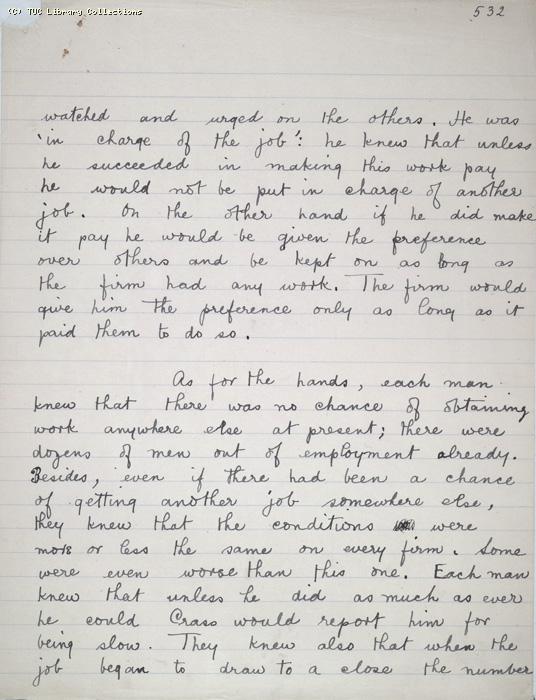 (C) TUC Library Collections
532
watched and urged on the others. He was
'in charge of the job': he knew that unless
he succeeded in making this work pay
he would not be put in charge of another
job. On the other hand if he did make
it pay he would be given the preference
over others and be kept on as long as
the firm had any work. The firm would
give him the preference only as long as it
paid them to do so.
As for the hands, each man
knew that there was no chance of obtaining
work anywhere else at present; there were
dozens of men out of employment already.
Besides, even if there had been a chance
of getting another job somewhere else,
they knew that the conditions were
more or less the same on every firm. Some
were even worse than this one. Each man
knew that unless he did as much as ever
he could Crass would report him for
being slow. They knew also that when the
job began to draw to a close the number